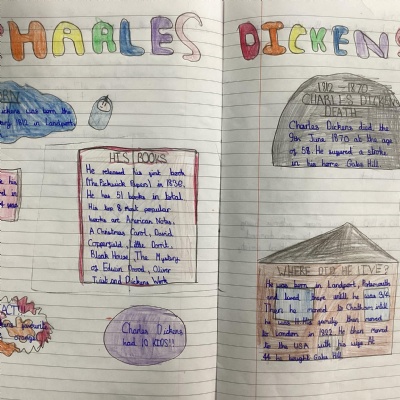 CHARLES
DICKENS
BORN
Dickens was born the
1812 in Landport,
HIS BOOKS
He released his first book
(The Pickwick Papers) in 1836.
He has 51 books in total.
His top 8 most popular
books are American Notes,
A Christmas Carol, David
Copperfield, Little Dorrit,
Bleak House, The Mystery
of Edwin Drood, Oliver
Twist and Dickens Work
Charles Dickens
had 10 KIDS!!
1812 - 1870
CHARLES DICKENS
DEATH
Charles Dickens died the
9th June 1870 at the age
of 58. He suffered a stroke
in his home Gabs Hill
WHERE DID HE LIVE?
He was born in Landport, Portsmouth
and lived there until he was 3/4.
Then he moved to Chatham until
he was 11. His family then moved
to London in 1822. He then moved
to the USA with his wife. At
44 he bought Gabs Hill